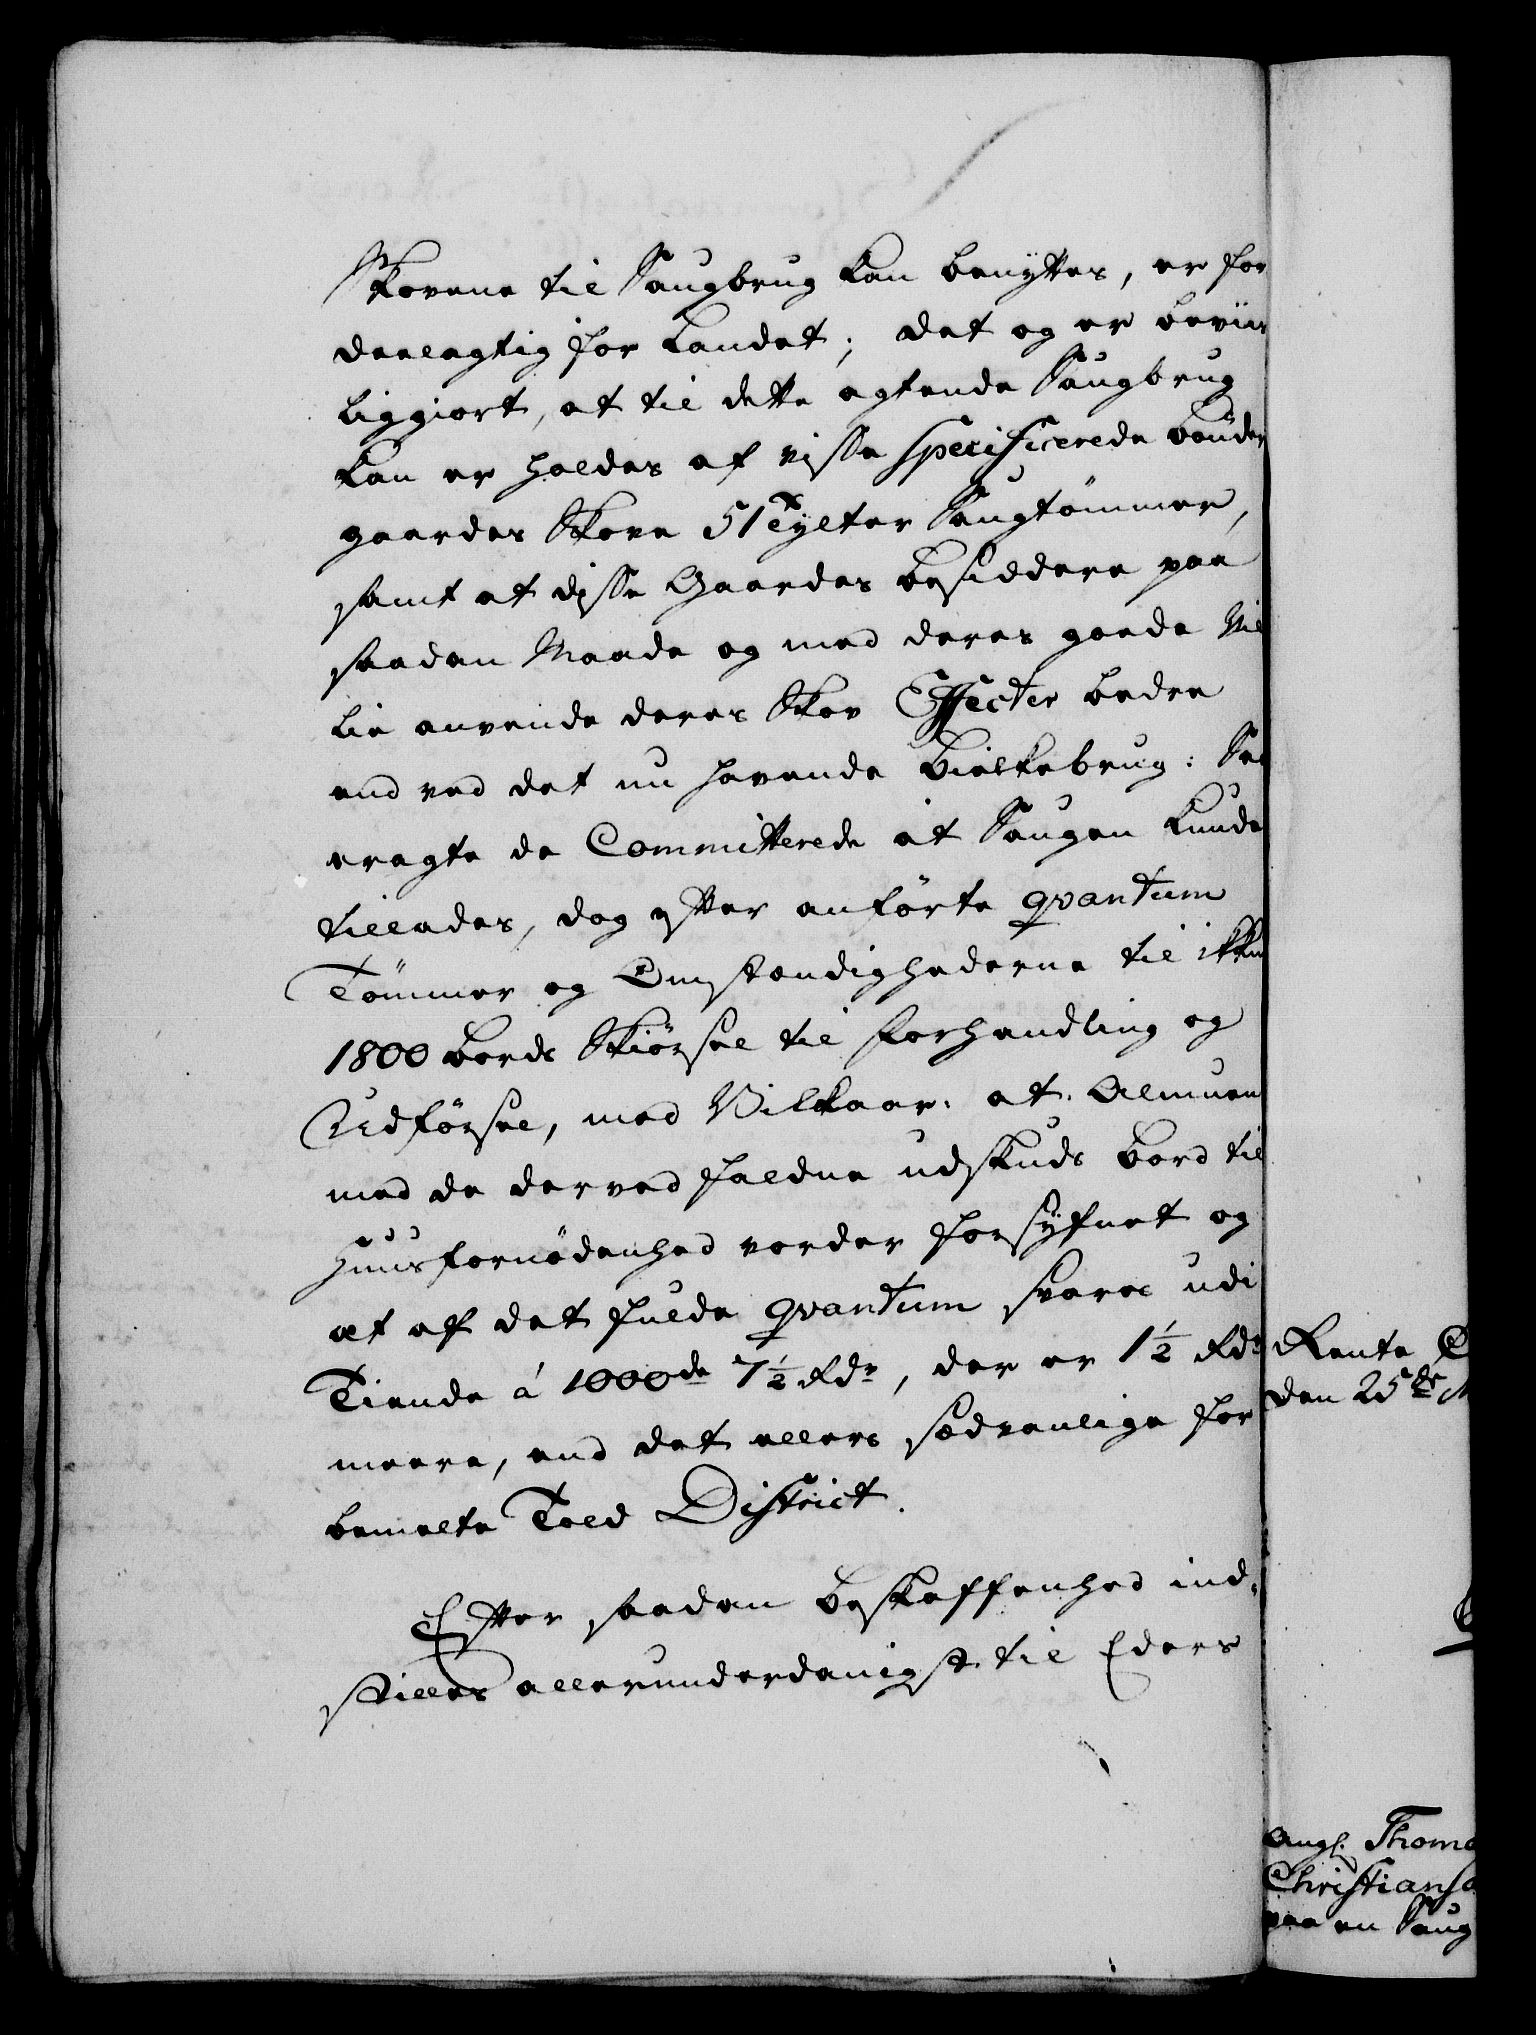 Skovene til Saugbrug kan benyttes, er for
deelagtig for Landet; det og er beviis
liggiort, at til dette agtende Saugbrug
kan er holdes af visse specificerede bønder
gaardes Skove 51 Tylter Saugtømmer,
samt at disse Gaardes besiddere paa
saadan Maade og med deres goede Vil
lie anvende deres Skov Effecter bedre
end ved det nu havende bielkebrug: Saa
eragte de Committerede at Saugen kunde
tillades, dog efter anførte qvantum
Tømmer og Omstændighederne til ikkun
1800 bords Skiørsel til forhandling og
Udførsel, med Vilkaar: at Almuen
med de derved faldne udskuds bord til
huusfornødenhed vorder forsyfnet og
at af det fulde qvantum svares udi
Tiende á 1000de 7½ Rdr, der er 1½ Rdr
meere, end det ellers sædvanlige for
bemelte Told District.
Efter saadan beskaffenhed ind-
stilles allerunderdanigst til Eders
Rente
den 25de
ang: Thoma
Christiansa
paa en Saug